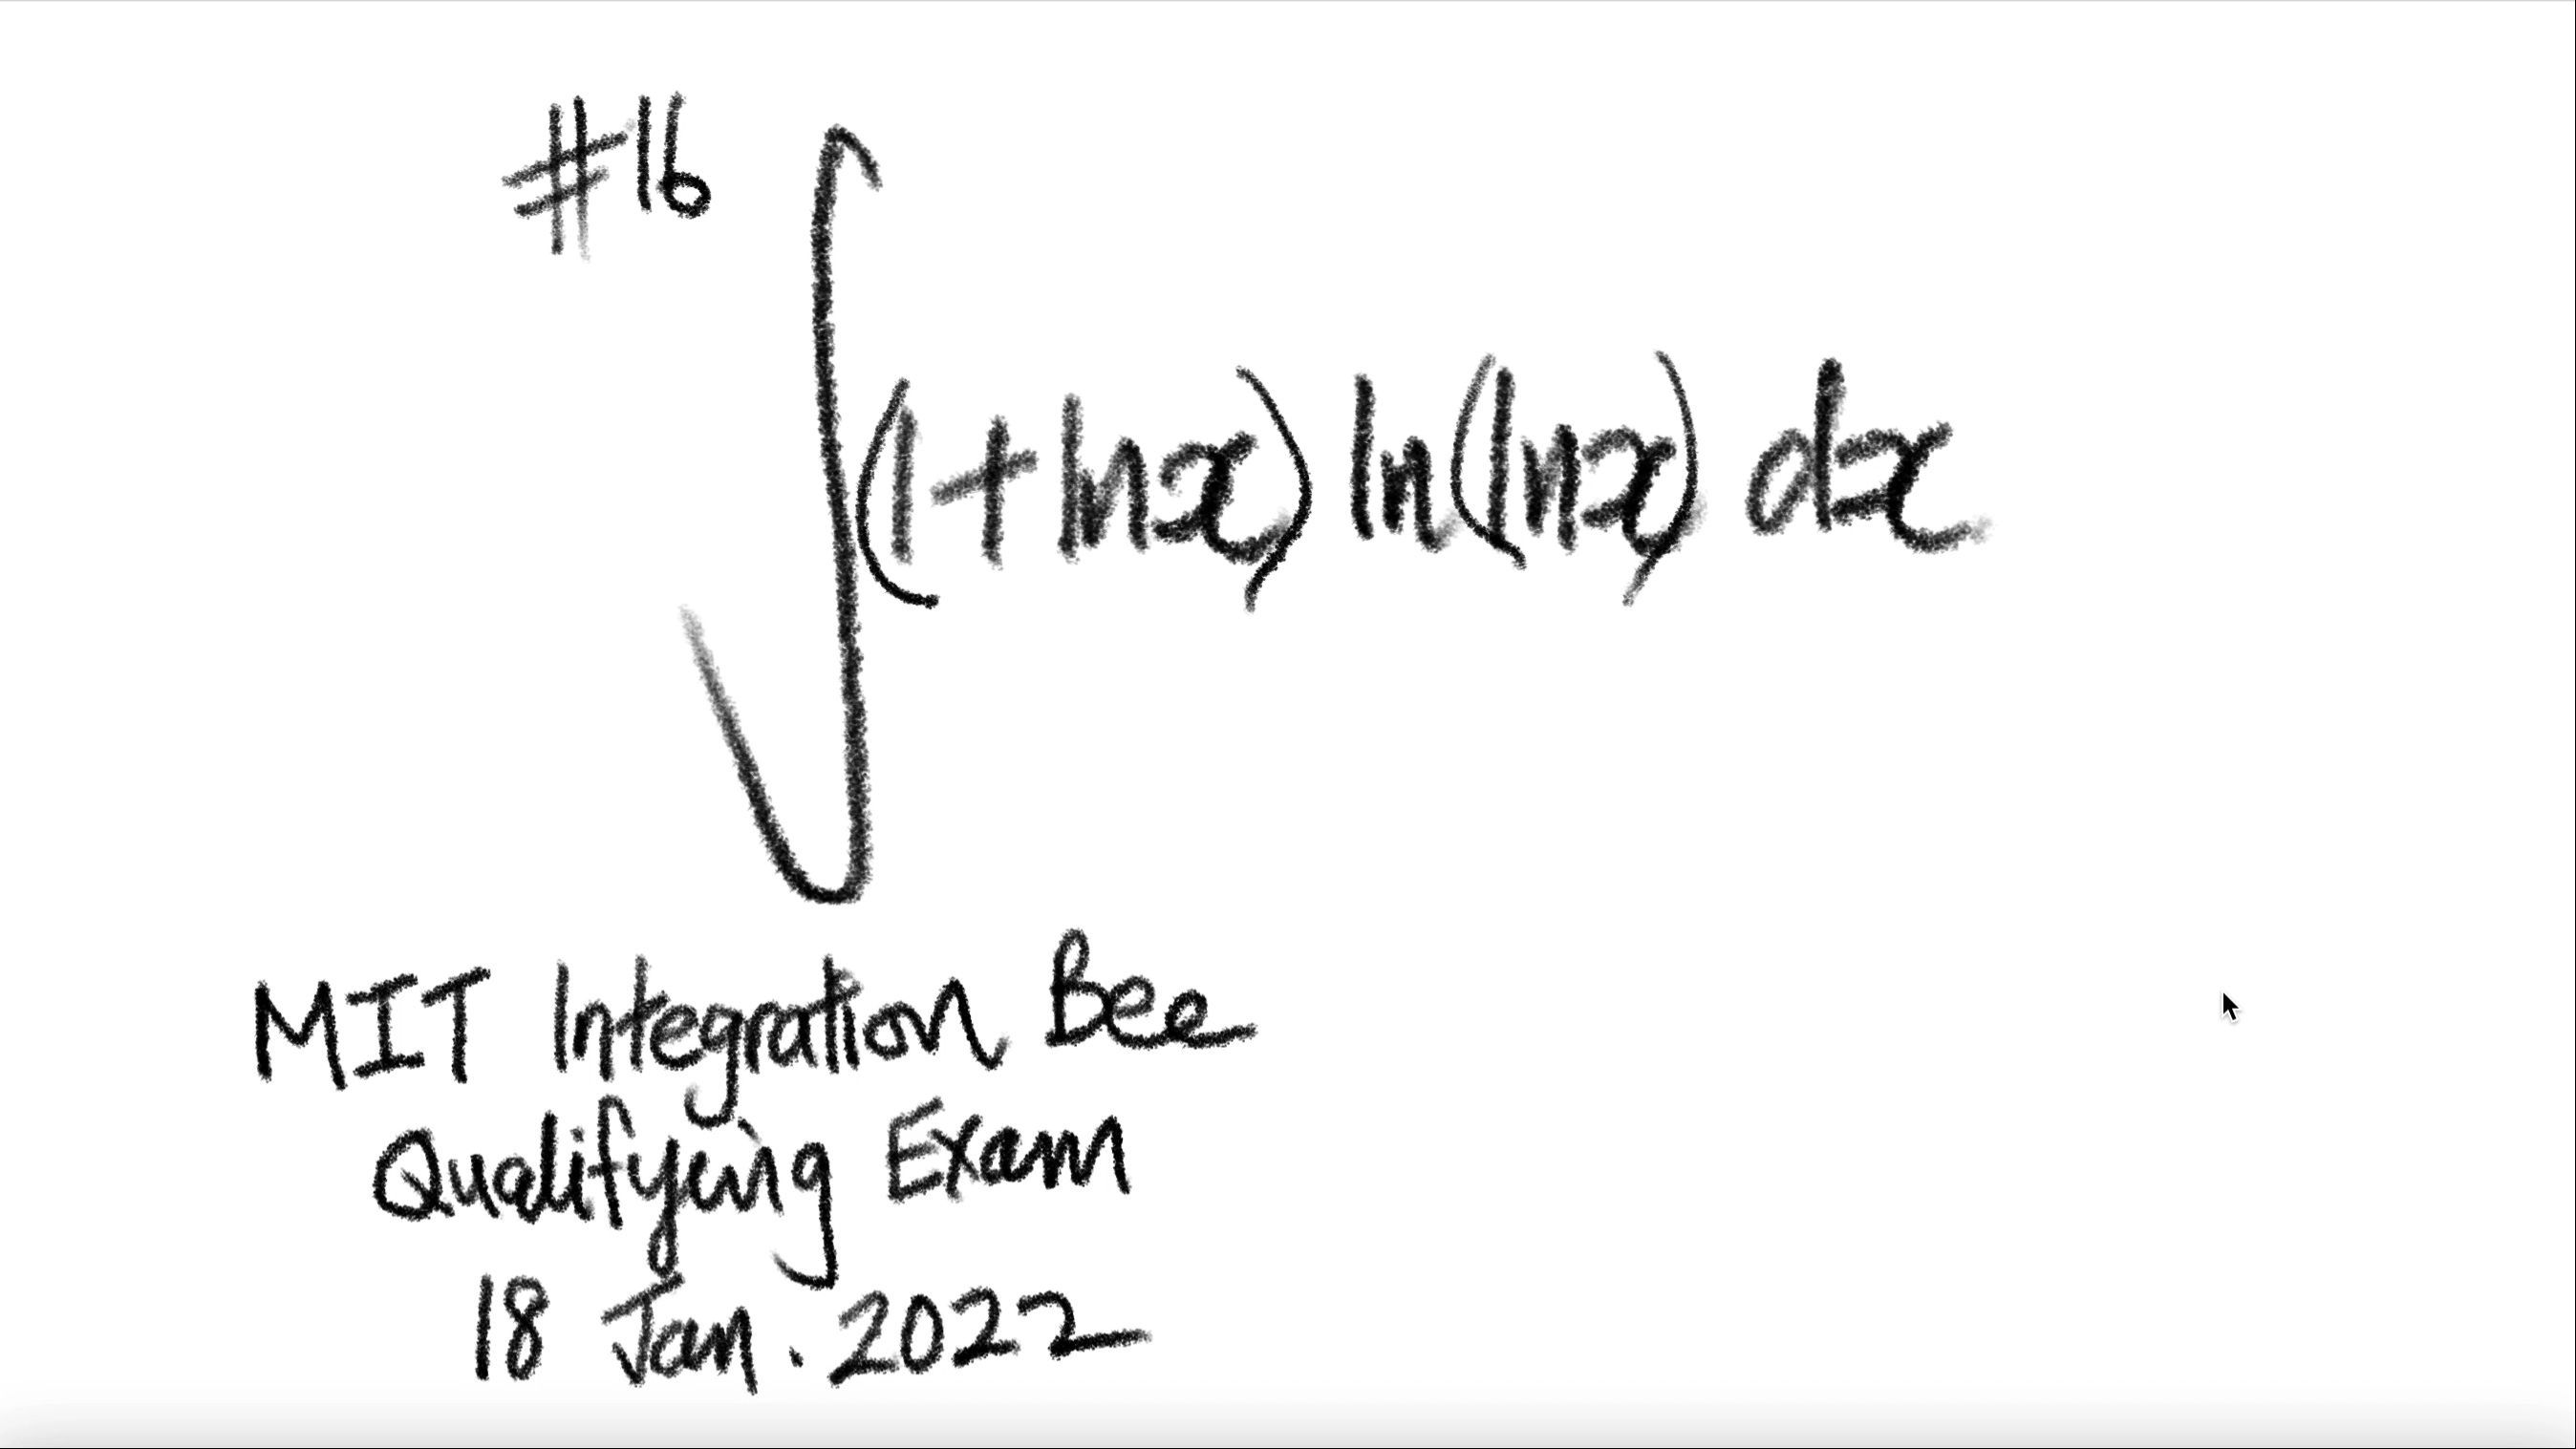 #16
∫(1+lnx) ln(lnx) dx
MIT Integration Bee
Qualifying Exam
18 Jan. 2022